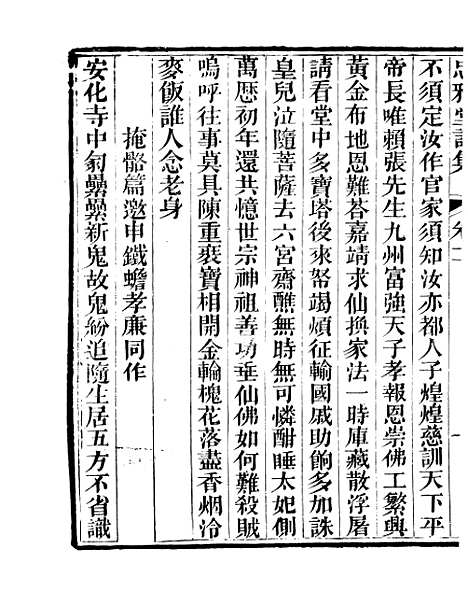 忠雅堂詩集
卷十
不須定汝作官家須知汝亦都人子煌煌慈訓天下平
帝長唯賴張先生九州富強天子孝報恩崇佛工繁興
黃金布地恩難荅嘉靖求仙換家法一時庫藏散浮屠
請看堂中多寶塔後來帑竭煩征輸國戚助餉多加誅
皇兒泣隨菩薩去六宮齋醮無時無可憐酣睡太妃側
萬厯初年還共憶世宗神祖善功垂仙佛如何難殺賊
嗚呼往事莫具陳重裹寶相開金輪槐花落盡香烟冷
麥飯誰人念老身
掩骼篇邀申鐵蟾孝廉同作
安化寺中匑纍纍新鬼故鬼紛追隨生居五方不省識